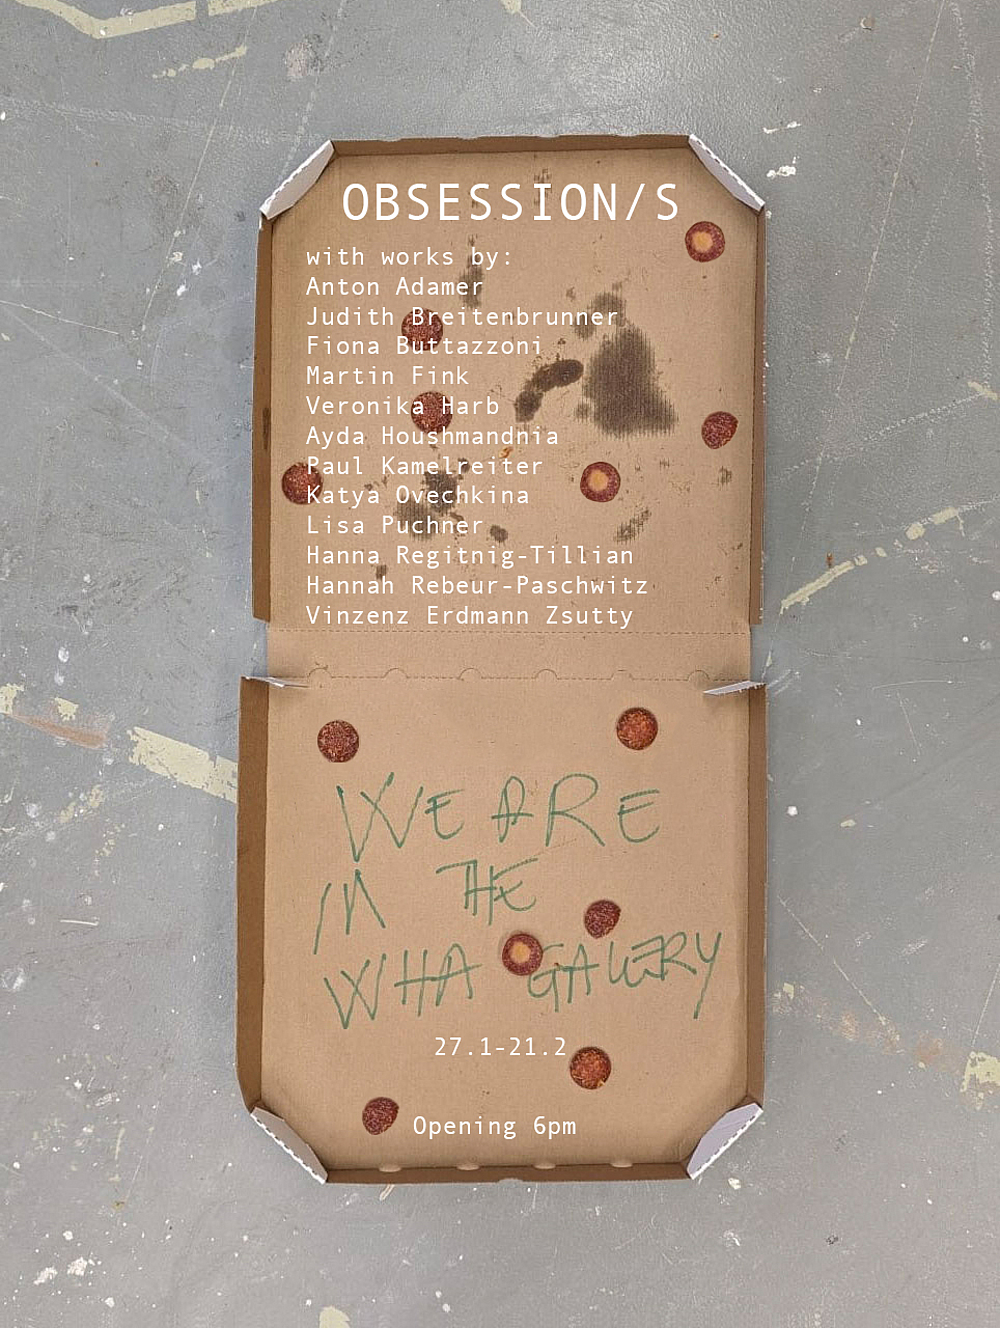 OBSESSION/S
with works by:
Anton Adamer
Judith Breitenbrunner
Fiona Buttazzoni
Martin Fink
Veronika Harb
Ayda Houshmandnia
Paul Kamelreiter
Katya Ovechkina
Lisa Puchner
Hanna Regitnig-Tillian
Hannah Rebeur-Paschwitz
Vinzenz Erdmann Zsutty
WE ARE
IN THE
WHA GALLERY
27.1-21.2
Opening 6pm